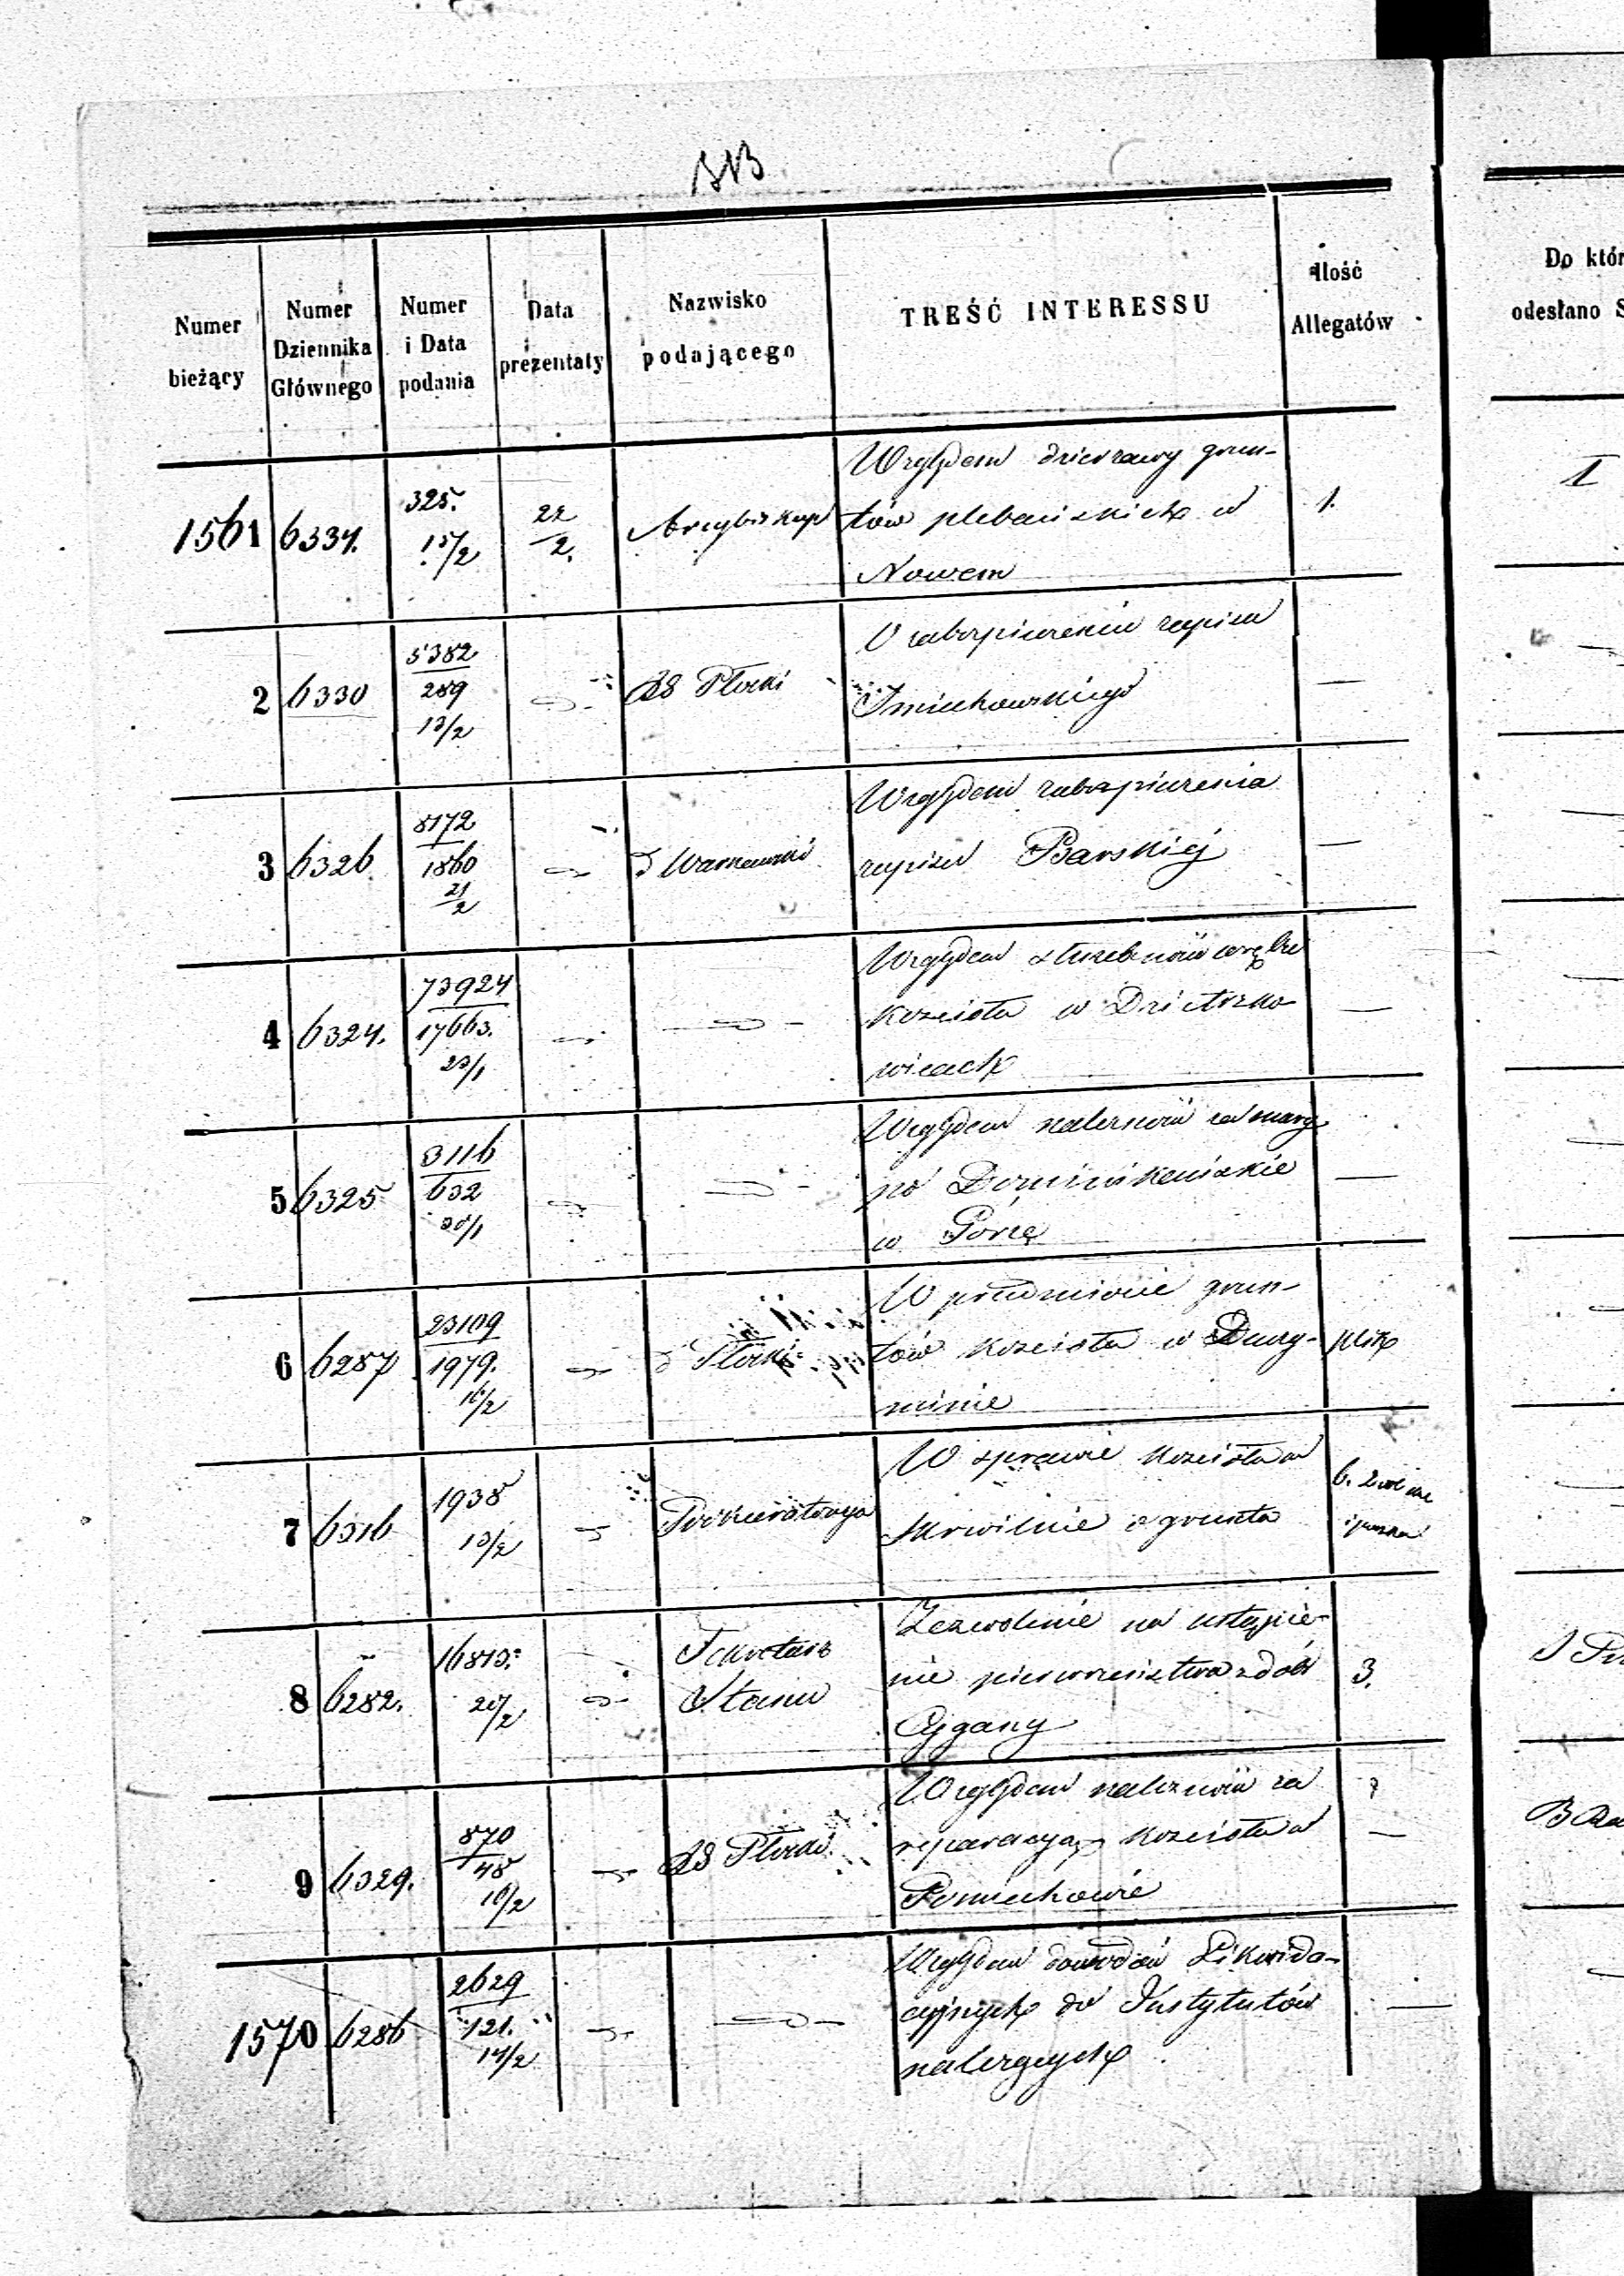 Numer bieżący
Numer Dziennika Głównego
Numer i Data podania
Data prezentaty
Nazwisko podającego
TREŚĆ INTERESSU
Ilość Allegatów
Do któr
odesłano S
1561 6334. 325. 15/2 22/2. Arcybiskup
Względem dzierzawy grun-
tów plebańskich w
Nowem
1.
1
2 6330 5382/289 13/2 Płocki
O zabezpieczeniu zapisu
Smiechowskiego
—
3 6326 8172/1860 21/2 Warszawski
Względem zabezpieczenia
zapisu Barskiéj
—
4 6324. 73924/17663. 23/1
Względem
kościoła w Dzietrzko-
wicach
—
5 6325 3116/632 30/1
Względem należności za
po Dominikańskie
w Górze
—
6 6287 23109/1979. 16/2 Płocki
W przedmiocie grun-
tów kościoła w
minie
plik
7 6316 1938 13/2 Prokuratorya
W sprawie kościoła w
Skrwilnie o grunta
6.
8 6282. 16813. 20/2 Sekretarz
Stanu
Zezwolenie na ustąpie-
nie pierwszeństwa z dóbr
Cygany
3.
9 6329. 870/48 16/2 Płocki
Względem należności za
reparacyą kościoła w
Pomiechowie
—
1570 6286 2629/121. 14/2
Względem dowodów Likwida-
cyjnych do Instytutów
należących
—